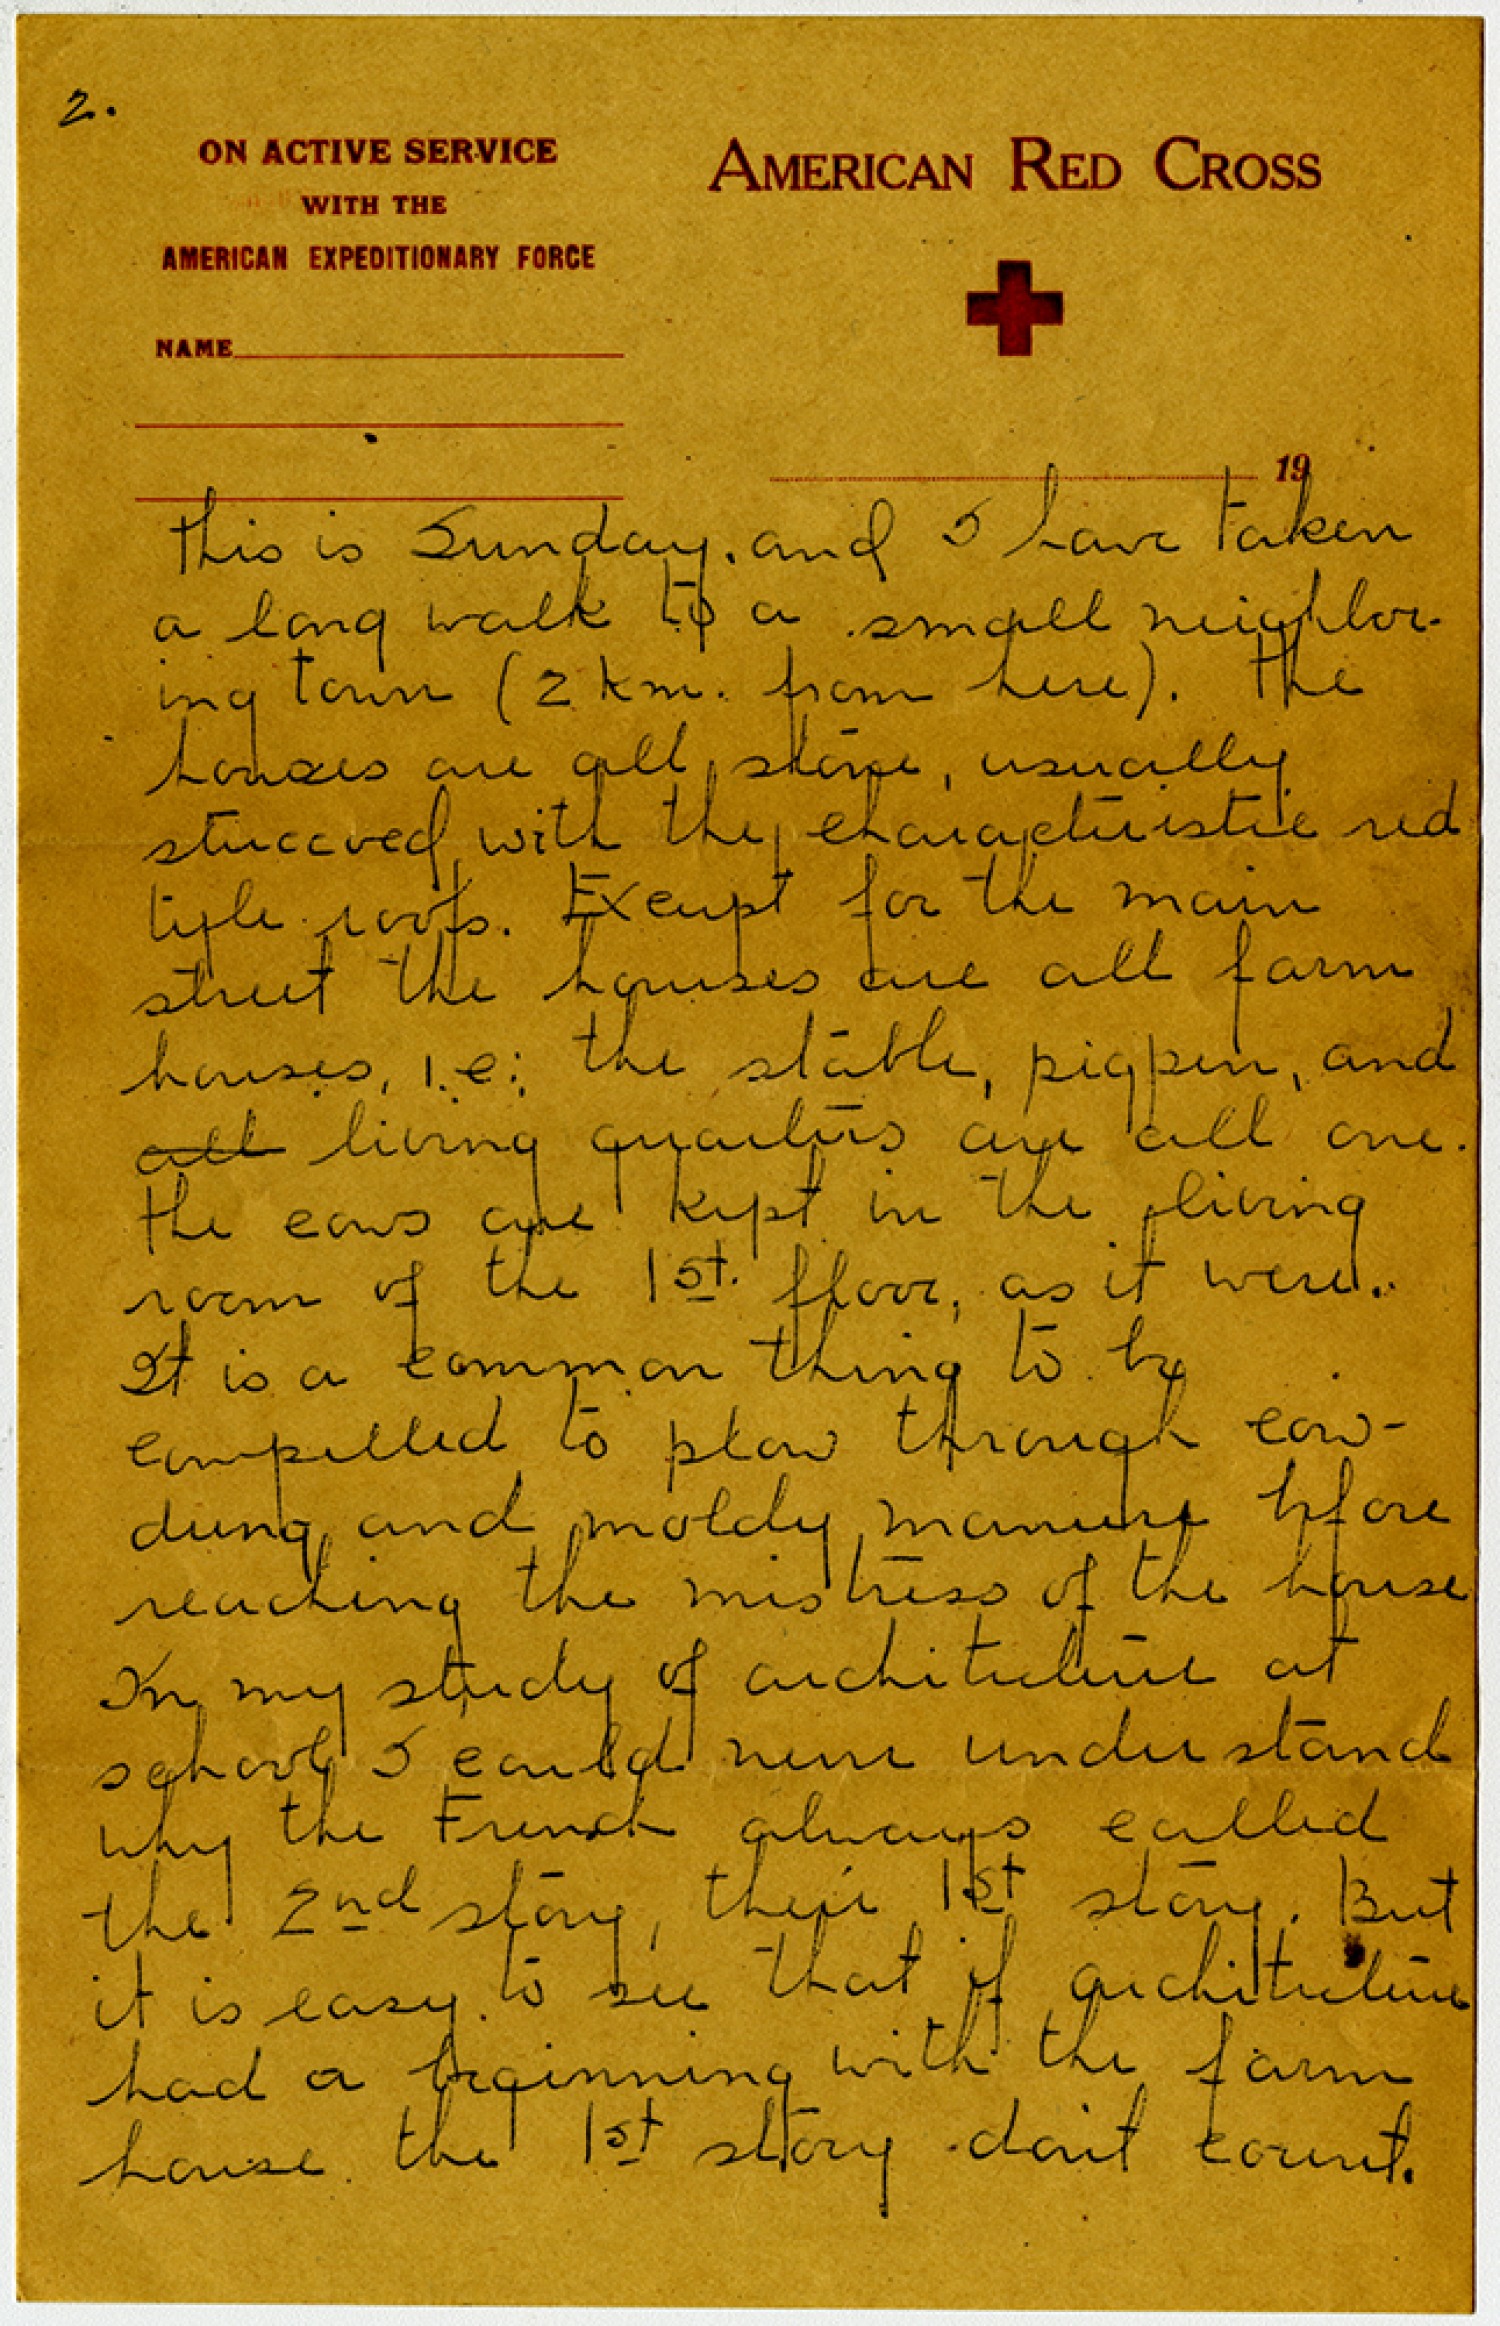 2.
ON ACTIVE SERVICE
WITH THE
AMERICAN EXPEDITIONARY FORCE
NAME
AMERICAN RED CROSS
19
This is Sunday, and I have taken
a long walk to a small neighbor-
ing town (2 km. from here). The
houses are all stone, usually
stuccoed with the characteristic red
tyle roofs. Except for the main
street the houses are all farm
houses, i.e; the stable, pigpen, and
all living quarters are all one.
The cows are kept in the living
room of the 1st. floor, as it were.
It is a common thing to be
compelled to plow through cow-
dung and moldy manure before
reaching the mistress of the house
In my study of architecture at
school I could never understand
why the French always called
the 2nd story, their 1st story. But
it is easy to see that if architecture
had a beginning with the farm
house the 1st story don't count.